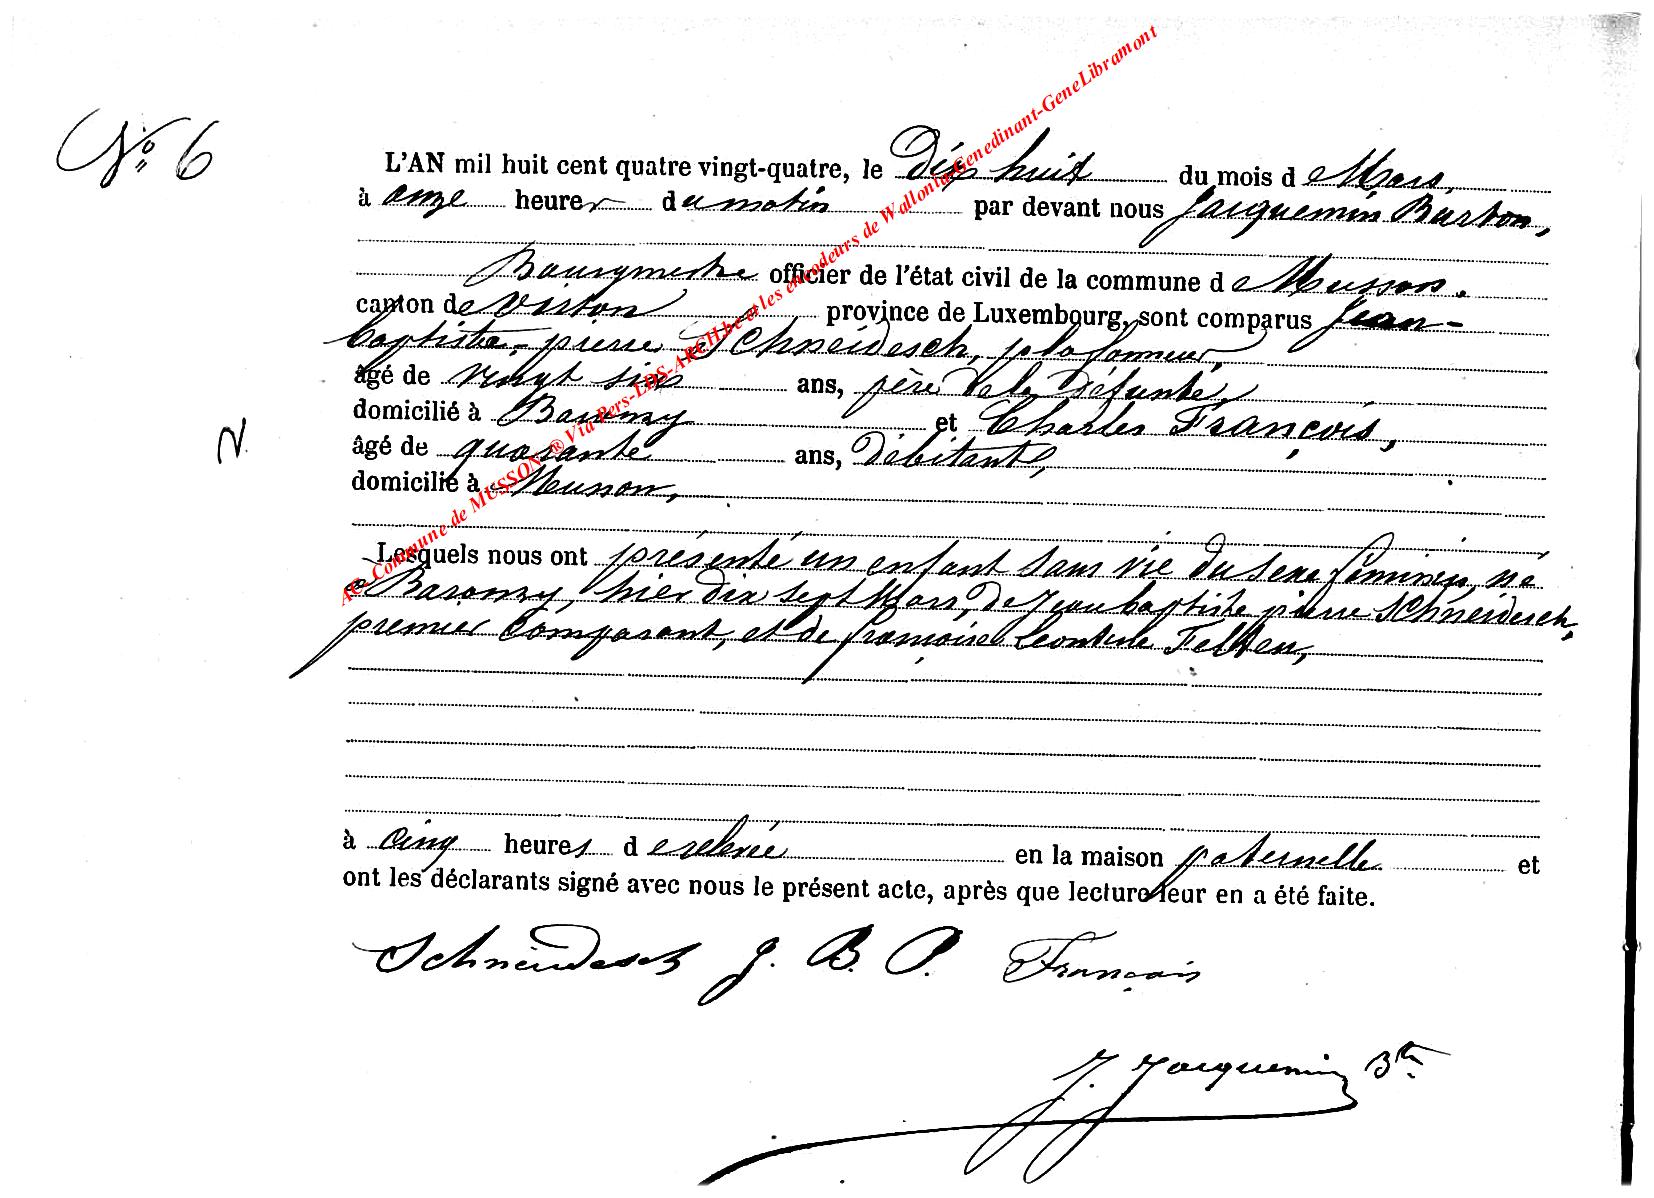 N° 6
L'AN mil huit cent quatre vingt-quatre, le Dix huit du mois de Mars,
à onze heures du matin par devant nous Jacquemin Burton,
Bourgmestre officier de l'état civil de la commune de Musson.
canton de Virton province de Luxembourg, sont comparus Jean-
baptiste-pierre Schneidesch, plafonneur,
âgé de vingt six ans, père de la défunte,
domicilié à Baranzy et Charles François,
âgé de quarante ans, Débitant,
domicilié à Musson,
N.
Lesquels nous ont présenté un enfant sans vie du sexe féminin, né
à Baranzy, hier dix sept Mars, de Jean baptiste pierre Schneidesch,
premier comparant, et de françoise Léontine Felten,
à cinq heures de relevée en la maison paternelle et
ont les déclarants signé avec nous le présent acte, après que lecture leur en a été faite.
Schneidesch J. B. P. François
J. Jacquemin Btn
Commune de MUSSON ® Via Pers-LDS-ARCH.be et les encodeurs de Wallonia-Genedinant-GeneLibramont